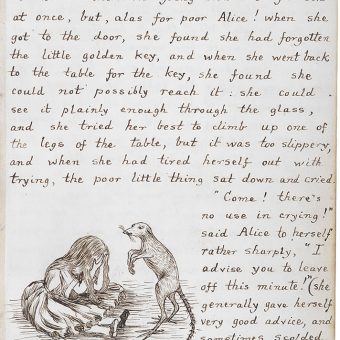 at once, but, alas for poor Alice! when she
got to the door, she found she had forgotten
the little golden key, and when she went back
to the table for the key, she found she
could not possibly reach it: she could
see it plainly enough through the glass,
and she tried her best to climb up one of
the legs of the table, but it was too slippery,
and when she had tired herself out with
trying, the poor little thing sat down and cried.
"Come! there's
no use in crying!"
said Alice to herself
rather sharply, "I
advise you to leave
off this minute!" (she
generally gave herself
very good advice, and
sometimes scolded